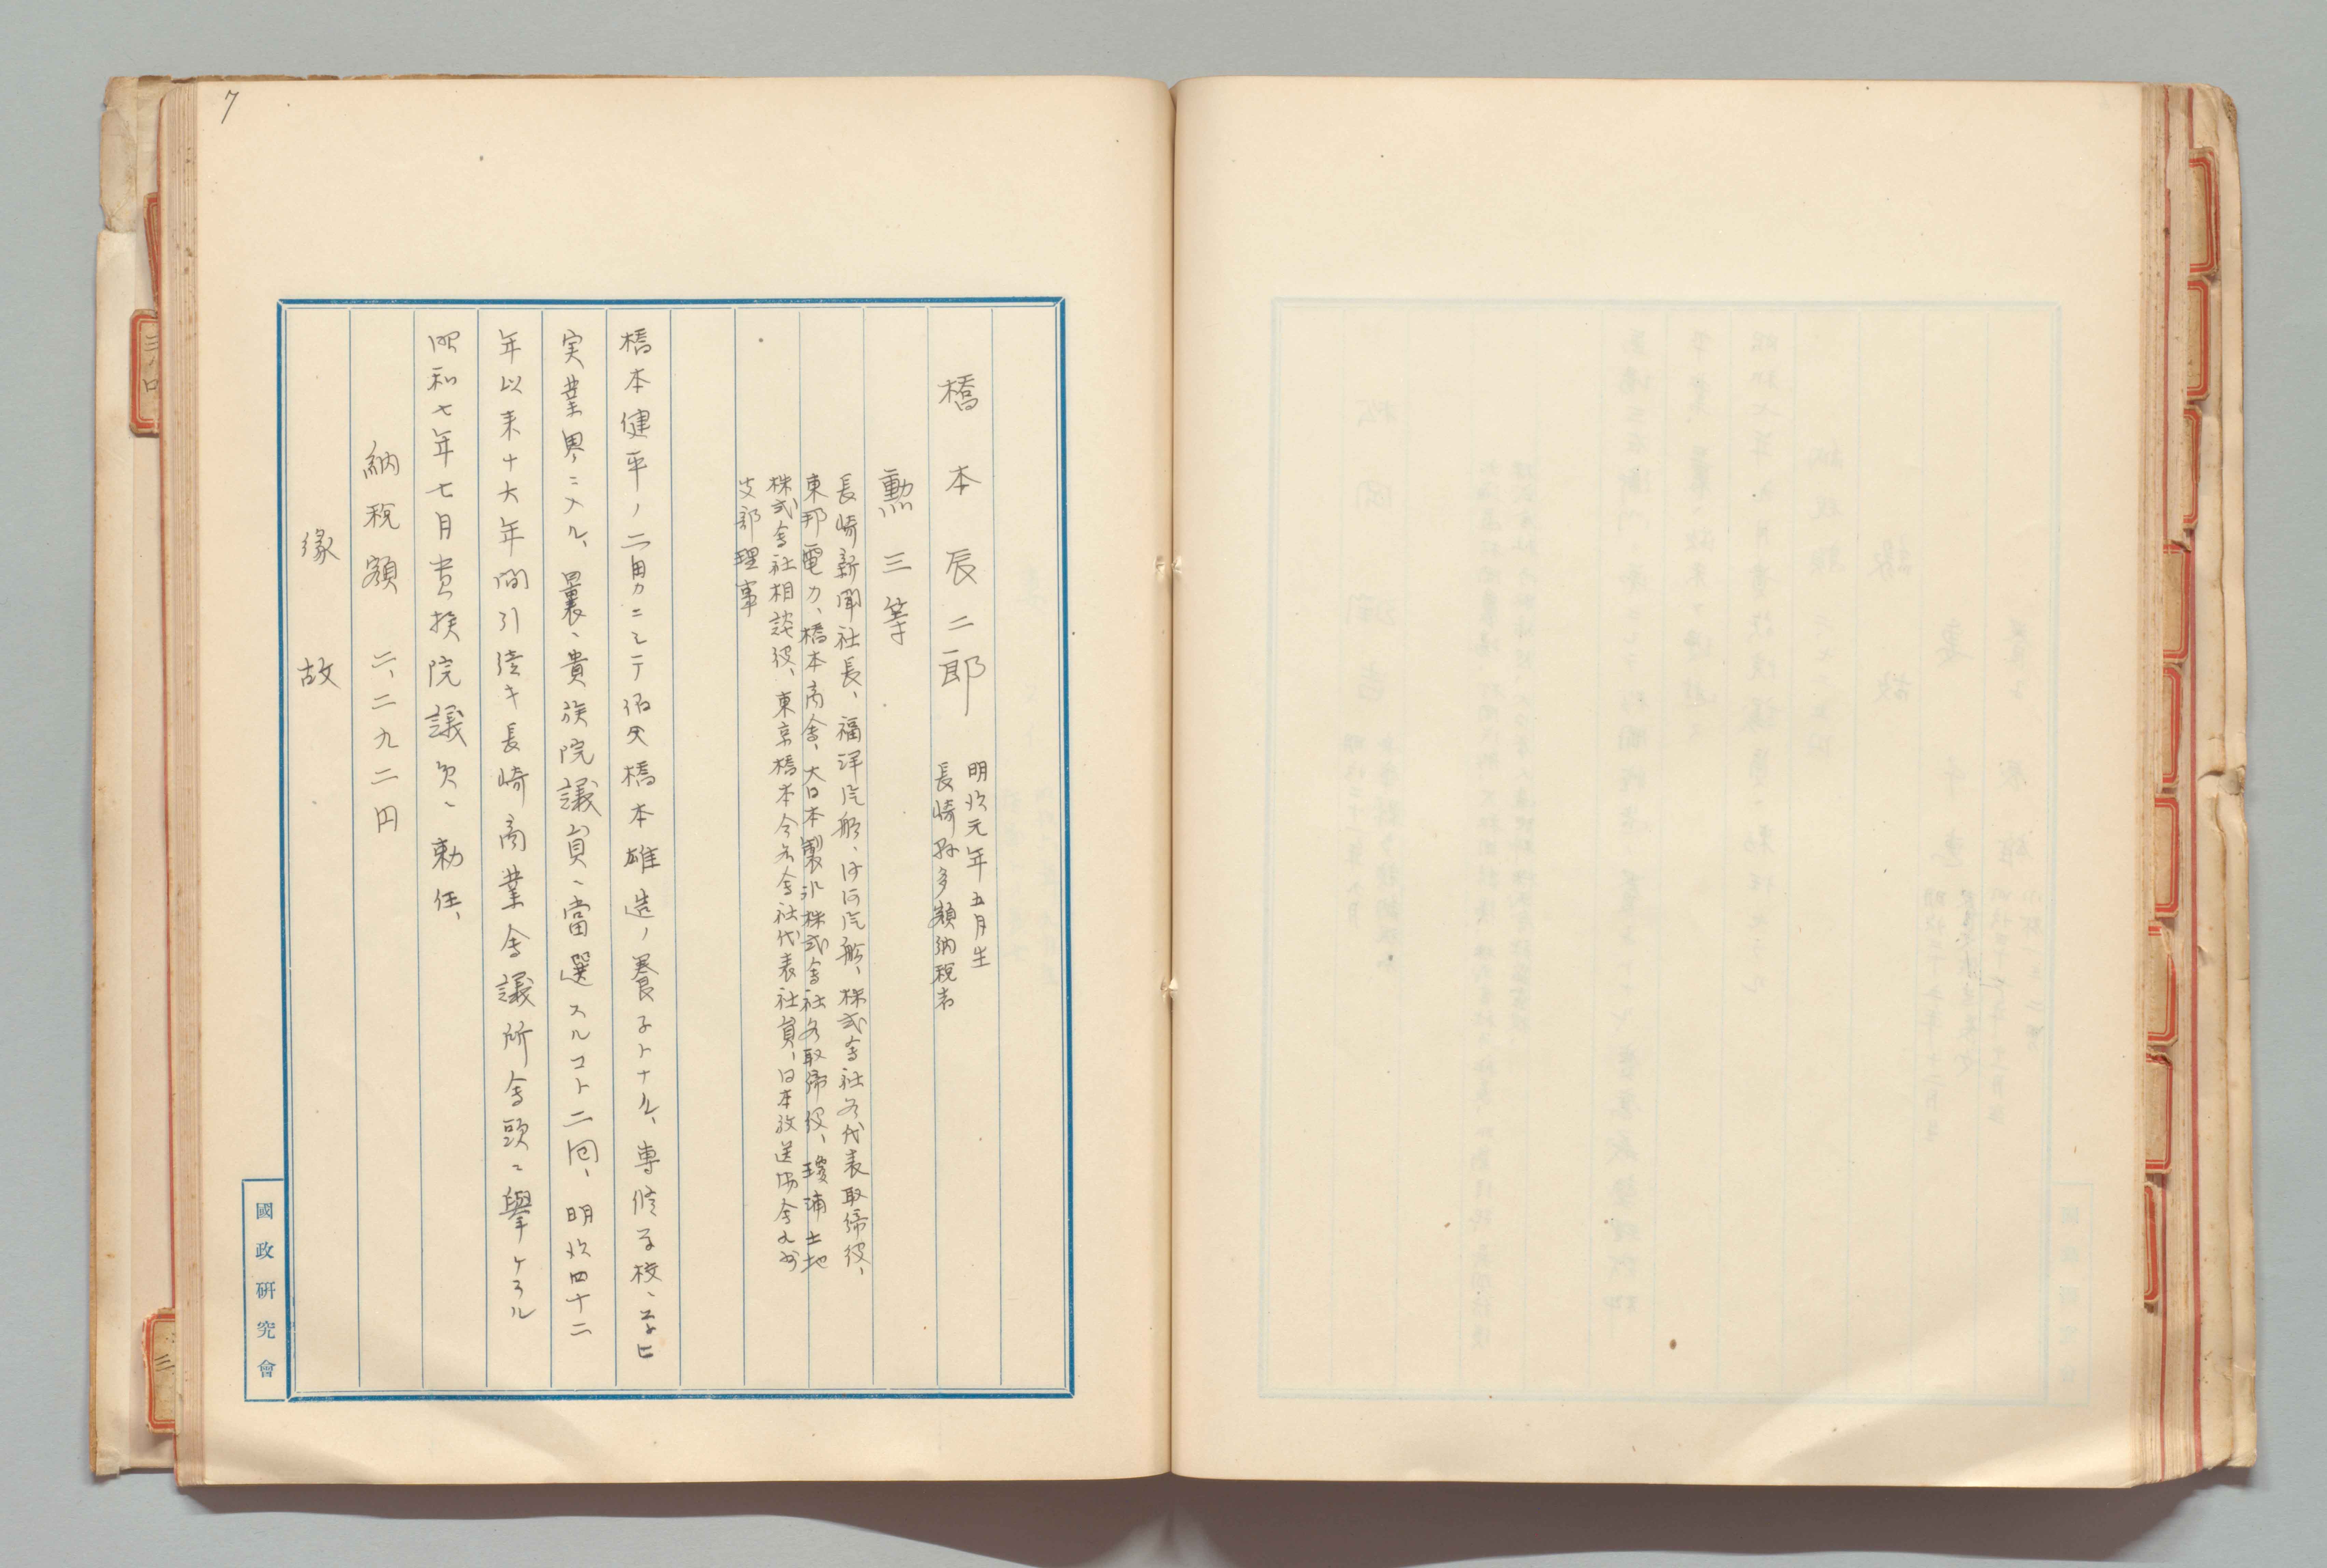 7
橋本辰二郎
明治元年五月生
長崎縣多額納税者
勲三等
長崎新聞社長、福洋汽船、汽船、株式会社各代表取締役、
東邦電力、橋本商会、大日本製氷株式会社各取締役、瓊浦土地
株式会社相談役、東京橋本合名会社代表社員、日本放送協会九州
支部理事
橋本健平ノ二男ニシテ伯父橋本雄造ノ養子トナル、専修学校ニ学ビ
実業界ニ入ル、曩ニ貴族院議員ニ當選スルコト二回、明治四十二
年以来十六年間引続キ長崎商業会議所会頭ニ擧ケラル
昭和七年七月貴族院議員ニ勅任、
納税額 二、二九二円
縁故
國政研究會